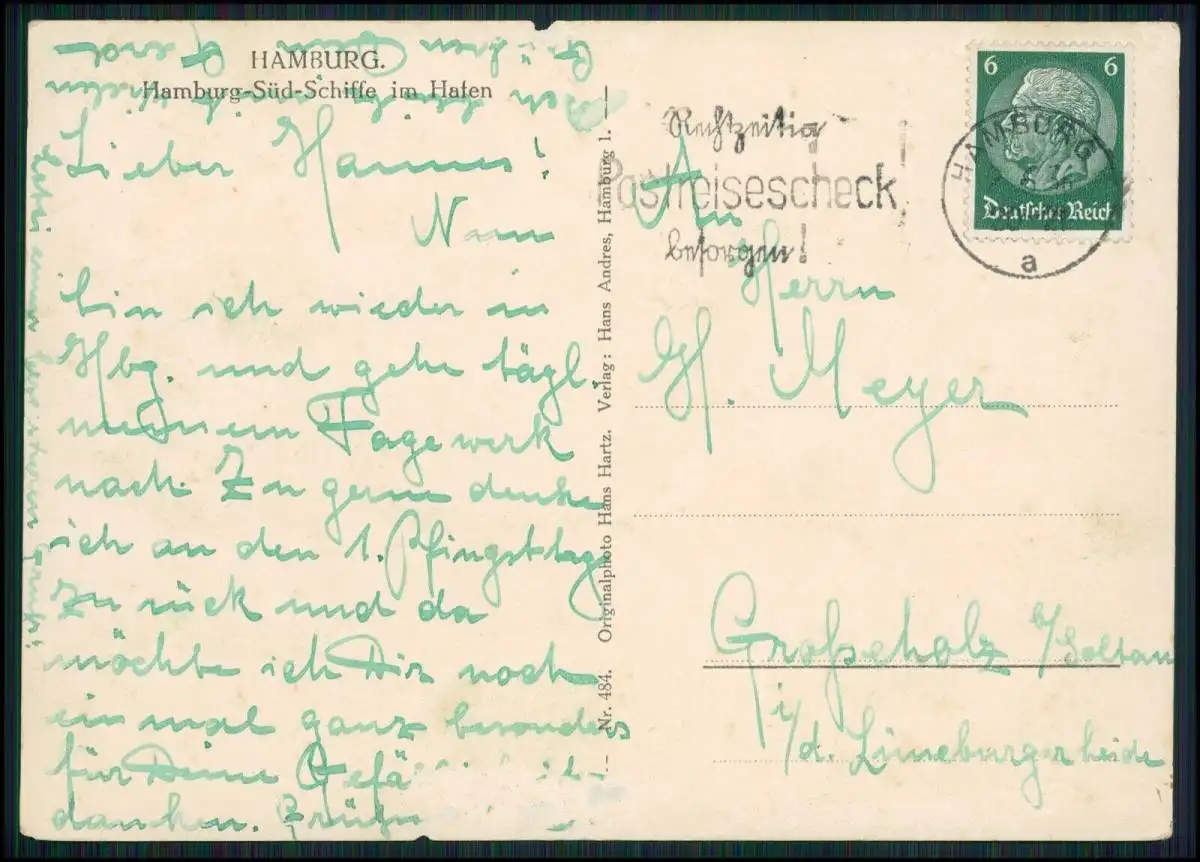 HAMBURG.
Hamburg-Süd-Schiffe im Hafen
Lieber Hannes!
Nun
bin ich wieder in
Hbg. und gehe tägl.
meinem Tagewerk
nach. Zu gerne denke
ich an den 1. Pfingsttag
zurück und da
möchte ich Dir noch
einmal ganz besonders
für Deine
danken.
Dein Gerd
Nr. 484. Originalphoto Hans Hartz. Verlag: Hans Andres, Hamburg 1.
Rechtzeitig
Postreisescheck
besorgen!
6 6
Deutsches Reich
HAMBURG
a
An
Herrn
H. Meyer
Großeholz b/Soltau
i/d. Lüneburgerheide